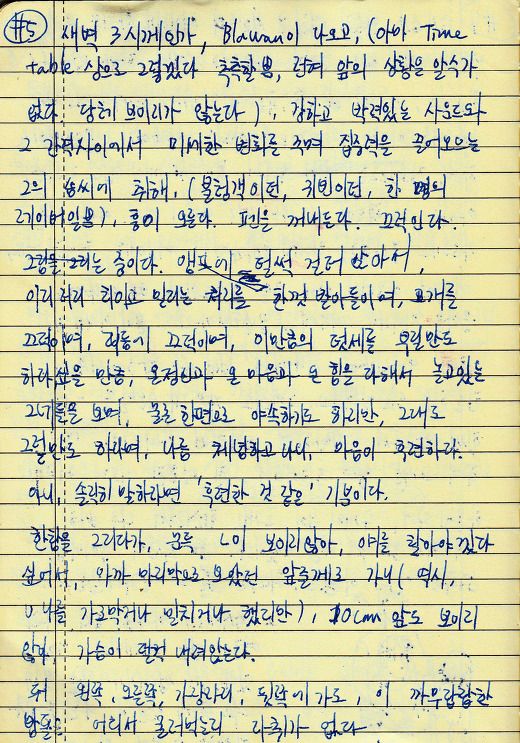 #5 새벽 3시께인가, Blawan이 나오고, (아마 Time
table 상으로 그렇겠다 추측할 뿐, 당체 앞의 상황을 알수가
없다. 당체 보이지가 않는다), 강하고 박력있는 사운드와
그 간격사이에서 미세한 변화를 주며 집중력을 끌어모으는
그의 솜씨에 취해, (몰험객이던, 취민이던, 한 명의
레이버일 뿐), 흥이 오른다. 펜을 꺼내든다. 끄적인다.
그림을 그리는 중이다. 앰프에 털썩 걸터 앉아서,
이리저리 치이고 밀리는 처리를 한껏 받아들이며, 고개를
끄적이며, 리듬에 끄적이며, 이만큼의 텃세를 부릴만도
하다 싶을 만큼, 온정신과 온 마음과 온 힘을 다해서 놀고있는
그녀들을 보며, 물론 한편으로 야속하기도 하지만, 그래도
그럴만도 하다며, 나름 체념하고 나니, 마음이 후련하다.
아니, 솔직히 말하라면 '후련한 것 같은' 기분이다.
한참을 그리다가, 문득 L이 보이지 않아, 얘를 찾아야겠다
싶어서, 아까 마지막으로 보았던 앞쪽께로 가니 (역시,
나를 가로막거나 밀치거나 했지만), 10cm 앞도 보이지
않아, 가슴이 덜컥 내려앉는다.
왼쪽, 오른쪽, 가장자리, 뒷쪽에 가도, 이 까무잡잡한
어디서 굴러먹는지 자취가 없다